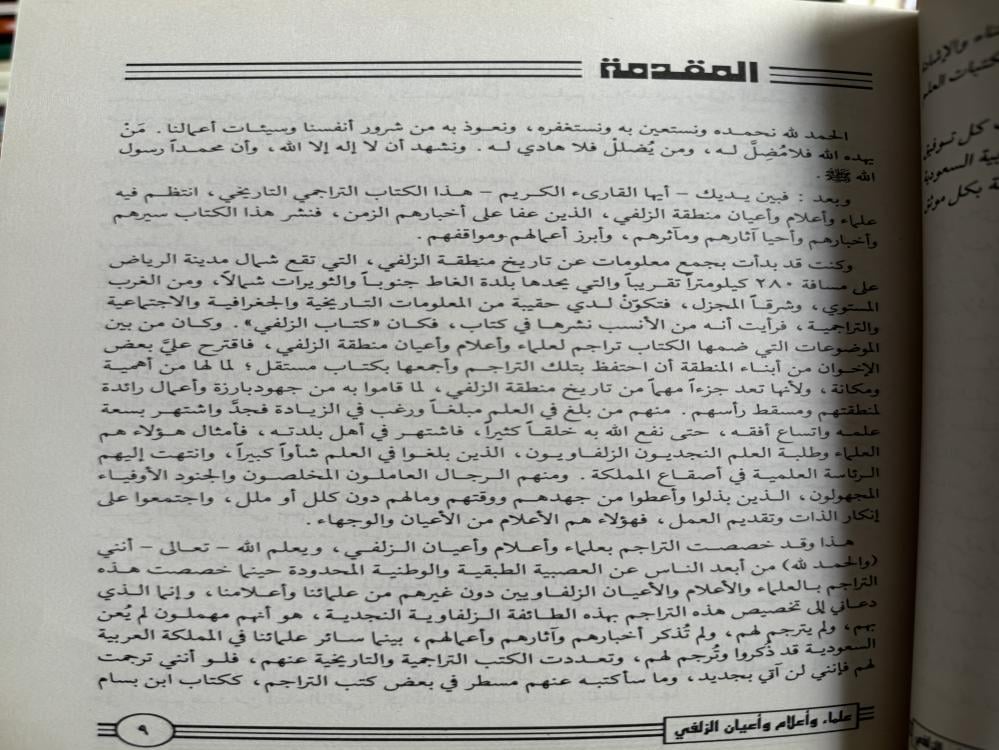 المقدمة
الحمد لله نحمده ونستعين به ونستغفره، ونعوذ به من شرور أنفسنا وسيئات أعمالنا. مَنْ
يهده الله فلا مُضِلَّ له، ومن يُضللْ فلا هادي له. ونشهد أن لا إله إلا الله، وأن محمداً رسول
الله ﷺ.
وبعد: فبين يديك - أيها القارىء الكريم - هذا الكتاب التراجمي التاريخي، انتظم فيه
علماء وأعلام وأعيان منطقة الزلفي، الذين عفا على أخبارهم الزمن، فنشر هذا الكتاب سيرهم
وأخبارهم وأحيا آثارهم ومآثرهم، وأبرز أعمالهم ومواقفهم.
وكنت قد بدأت بجمع معلومات عن تاريخ منطقة الزلفي، التي تقع شمال مدينة الرياض
على مسافة ٢٨٠ كيلومتراً تقريباً والتي يحدها بلدة الغاط جنوباً والثويرات شمالاً، ومن الغرب
المستوي، وشرقاً المجزل، فتكوّنْ لدي حقيبة من المعلومات التاريخية والجغرافية والاجتماعية
والتراجمية، فرأيت أنه من الأنسب نشرها في كتاب، فكان «كتاب الزلفي». وكان من بين
الموضوعات التي ضمها الكتاب تراجم لعلماء وأعلام وأعيان منطقة الزلفي، فاقترح عليَّ بعض
الإخوان من أبناء المنطقة أن احتفظ بتلك التراجم وأجمعها بكتاب مستقل؛ لما لها من أهمية
ومكانة، ولأنها تعد جزءاً مهماً من تاريخ منطقة الزلفي، لما قاموا به من جهود بارزة وأعمال رائدة
لمنطقتهم ومسقط رأسهم. منهم من بلغ في العلم مبلغاً ورغب في الزيادة فجدَّ واشتهر بسعة
علمه واتساع أفقه، حتى نفع الله به خلقاً كثيراً، فاشتهر في أهل بلدته، فأمثال هؤلاء هم
العلماء وطلبة العلم النجديون الزلفاويون، الذين بلغوا في العلم شأواً كبيراً، وانتهت إليهم
الرئاسة العلمية في أصقاع المملكة. ومنهم الرجال العاملون المخلصون والجنود الأوفياء
المجهولون، الذين بذلوا وأعطوا من جهدهم ووقتهم ومالهم دون كلل أو ملل، واجتمعوا على
إنكار الذات وتقديم العمل، فهؤلاء هم الأعلام من الأعيان والوجهاء.
هذا وقد خصصت التراجم بعلماء وأعلام وأعيان الزلفي، ويعلم الله - تعالى - أنني
(والحمد لله) من أبعد الناس عن العصبية الطبقية والوطنية المحدودة حينما خصصت هذه
التراجم بالعلماء والأعلام والأعيان الزلفاويين دون غيرهم من علمائنا وأعلامنا، وإنما الذي
دعاني إلى تخصيص هذه التراجم بهذه الطائفة الزلفاوية النجدية، هو أنهم مهملون لم يُعن
بهم، ولم يترجم لهم، ولم تُذكر أخبارهم وآثارهم وأعمالهم، بينما سائر علمائنا في المملكة العربية
السعودية قد ذُكروا وتُرجم لهم، وتعددت الكتب التراجمية والتاريخية عنهم، فلو أنني ترجمت
لهم فإنني لن آتي بجديد، وما سأكتبه عنهم مسطر في بعض كتب التراجم، ككتاب ابن بسام
علماء وأعلام وأعيان الزلفي
٩
والإشادة
مكتبات العلم
كل توفيق
السعودية
بكل موثق